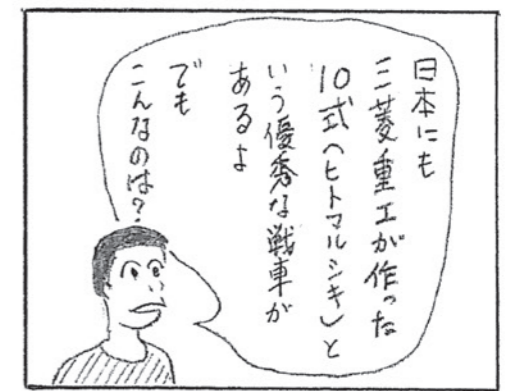 日本にも
三菱重工が作った
10式(ヒトマルシキ)と
いう優秀な戦車が
あるよ
でも
こんなのは?